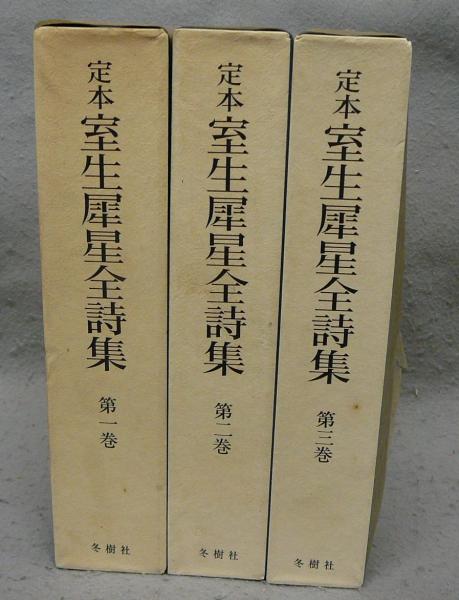 定本
室生犀星全詩集
第一巻
冬樹社
定本
室生犀星全詩集
第二巻
冬樹社
定本
室生犀星全詩集
第三巻
冬樹社